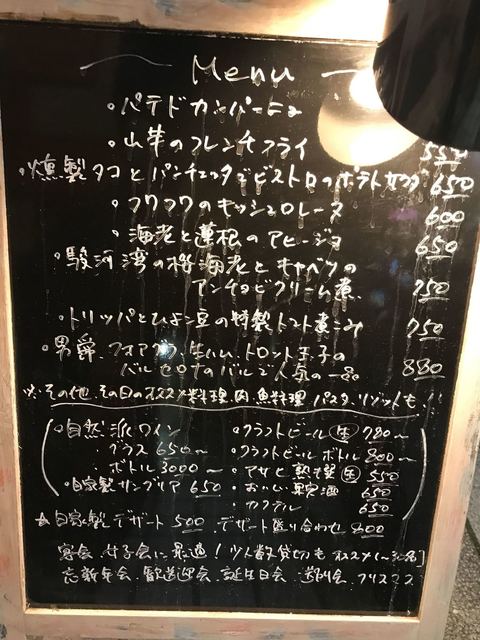 Menu
・パテドカンパーニュ
・山芋のフレンチフライ 550
・燻製タコとパンチェッタでビストロのポテトサラダ 650
・フワフワのキッシュロレーヌ 600
・海老と蓮根のアヒージョ 650
・駿河湾の桜海老とキャベツの
アンチョビクリーム煮 750
・トリッパとひよこ豆の特製トマト煮こみ 750
・男爵、フォアグラ、生ハム、トロント玉子の
バルセロナのバルで人気の一品 880
※その他、その日のオススメ料理、肉、魚料理 パスタ、リゾットも!!
・自然派ワイン
グラス 650〜
ボトル 3000〜
・自家製サングリア 650
・クラフトビール 生 780〜
・クラフトビール ボトル 800〜
・アサヒ 熟撰 生 550
・おいしい果実酒 650
・カクテル 650
★自家製デザート 500 デザート盛り合わせ 800
宴会、女子会に最適!少人数貸切もオススメ
忘新年会、歓送迎会、誕生日会、クリスマス